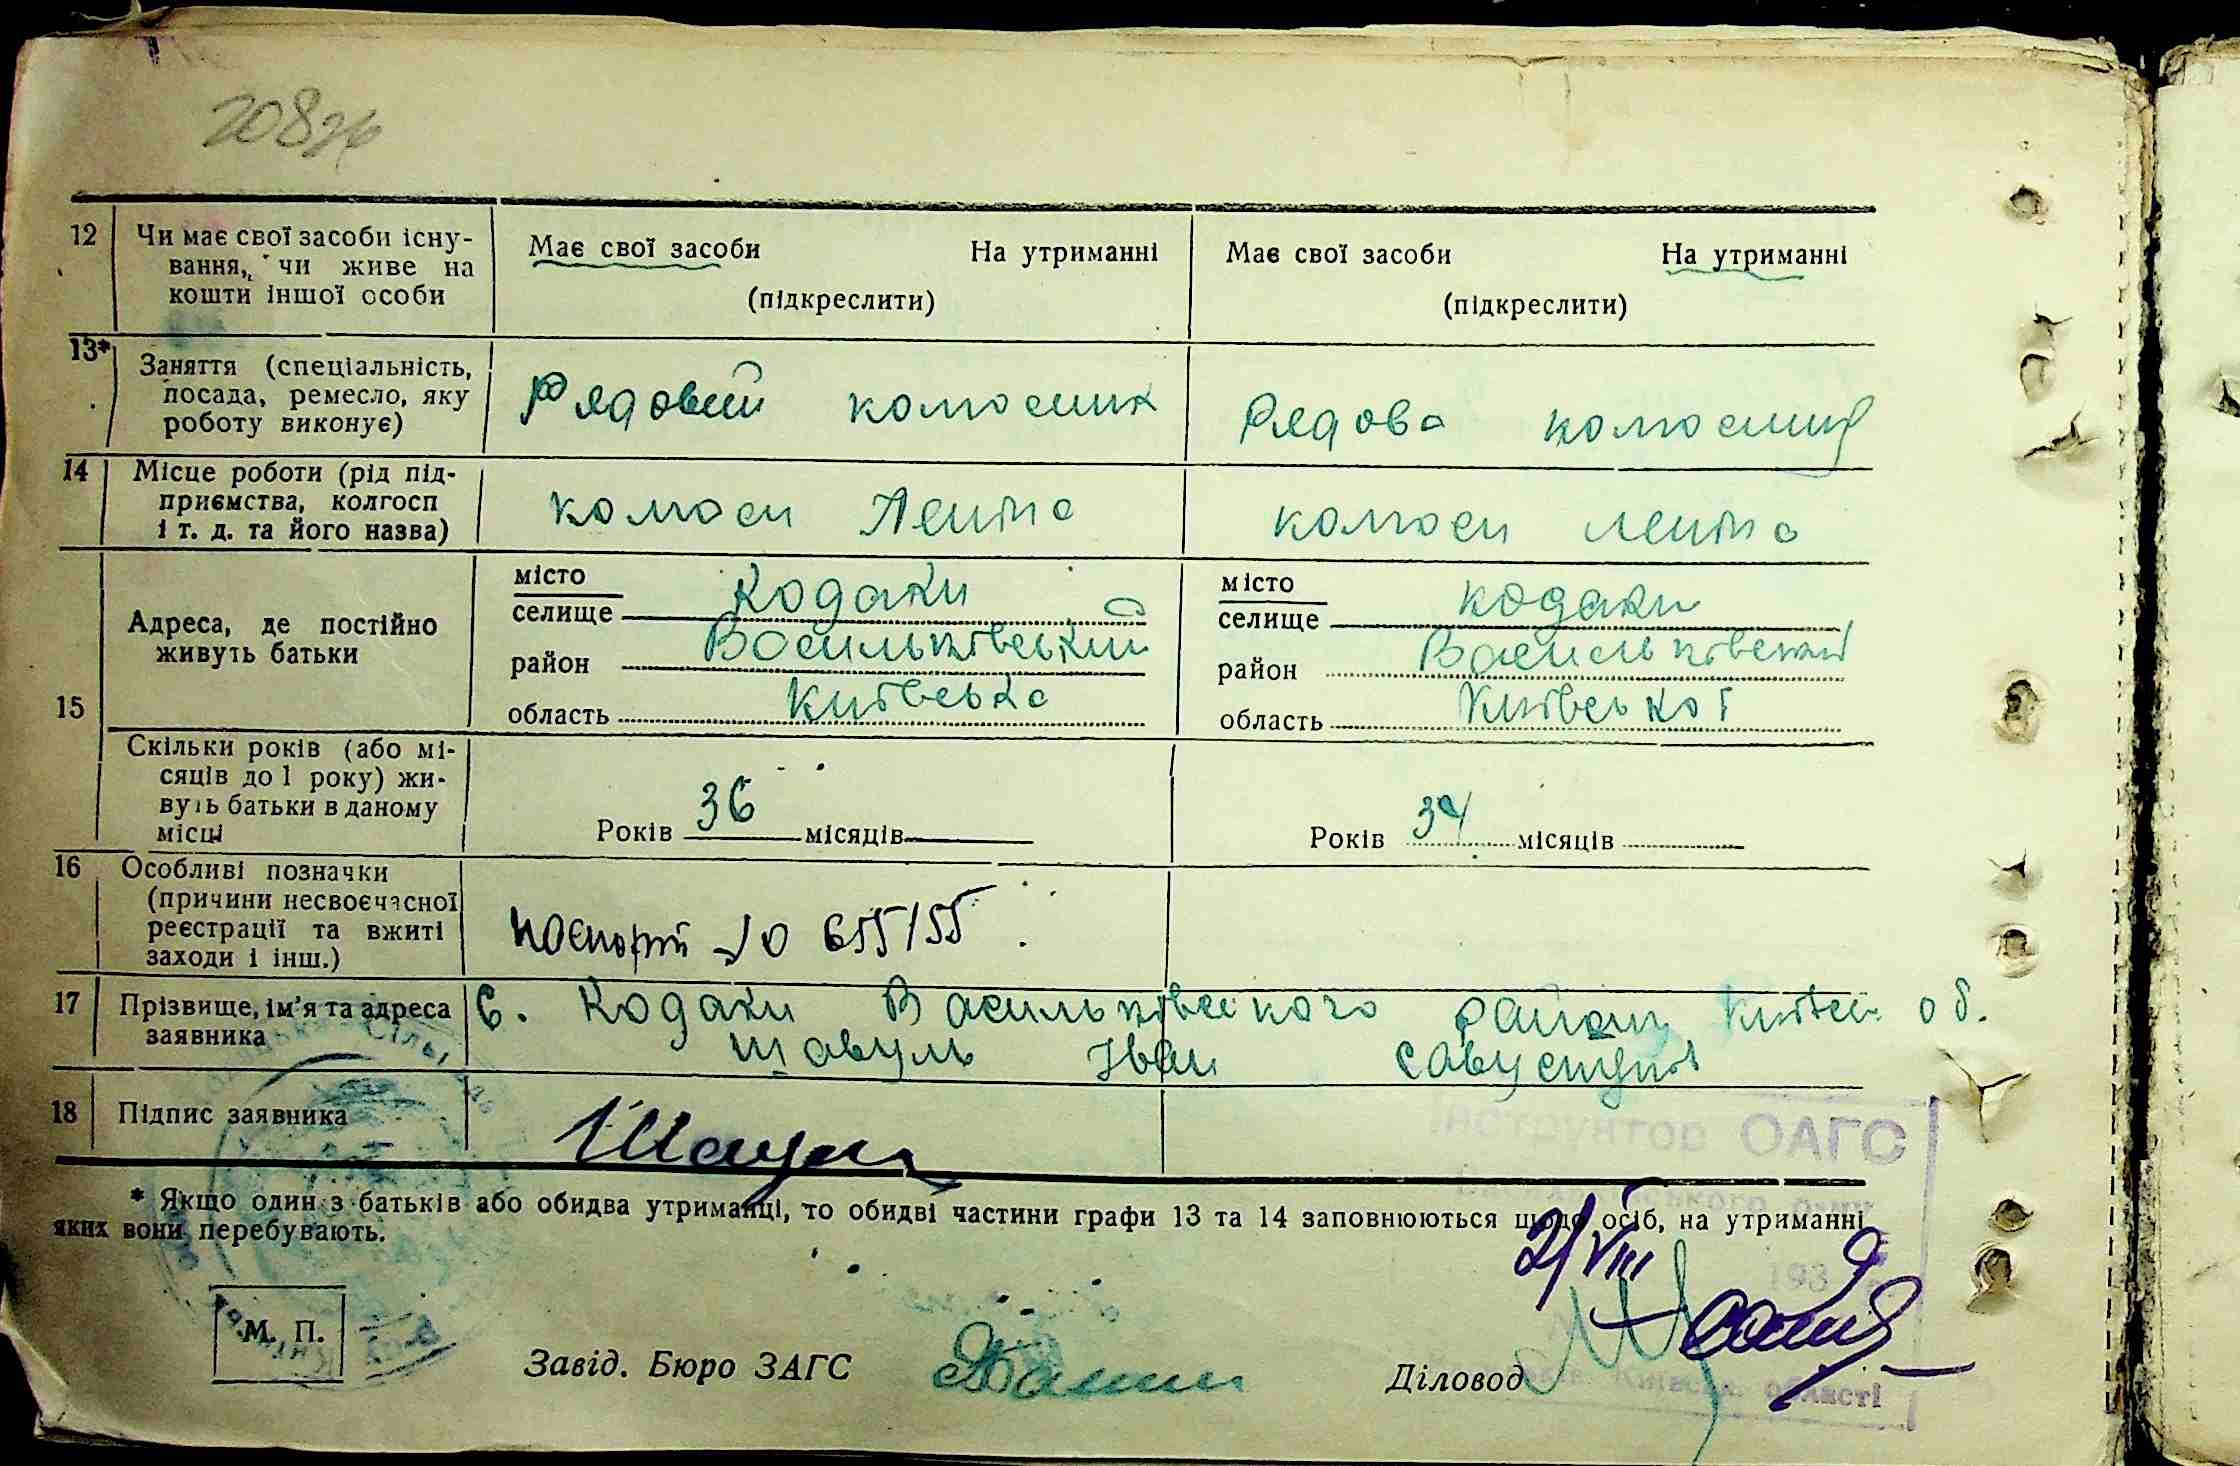 208зв
12 Чи має свої засоби існу-
вання, чи живе на
кошти іншої особи
Має свої засоби На утриманні
(підкреслити)
Має свої засоби На утриманні
(підкреслити)
13* Заняття (спеціальність,
посада, ремесло, яку
роботу виконує)
Рядовий колгосник
Рядова колгосниця
14 Місце роботи (рід під-
приємства, колгосп
і т. д. та його назва)
колгосп Леніна
колгосп леніна
15 Адреса, де постійно
живуть батьки
місто
селище Кодаки
район Васильківський
область Київська
місто
селище кодаки
район Васильківський
область Київської
Скільки років (або мі-
сяців до 1 року) жи-
вуть батьки в даному
місці
Років 36 місяців
Років 34 місяців
16 Особливі позначки
(причини несвоєчасної
реєстрації та вжиті
заходи і інш.)
паспорт 655155
17 Прізвище, ім'я та адреса
заявника
с. Кодаки Васильківського району Київсь об.
Шавуль Іван
18 Підпис заявника
* Якщо один з батьків або обидва утриманці, то обидві частини графи 13 та 14 заповнюються щодо осіб, на утриманні
яких вони перебувають.
Інструктор ОАГС
2/VIII
193
М. П.
Завід. Бюро ЗАГС
Діловод
Київськ. області